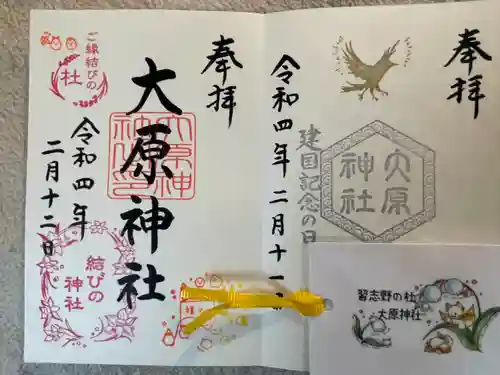 奉拝
令和四年 二月十一
建国記念の日
大原
神社
奉拝
大原神社
令和四年
二月十二日
ご縁結びの
社
結びの
神社
習志野の杜
大原神社